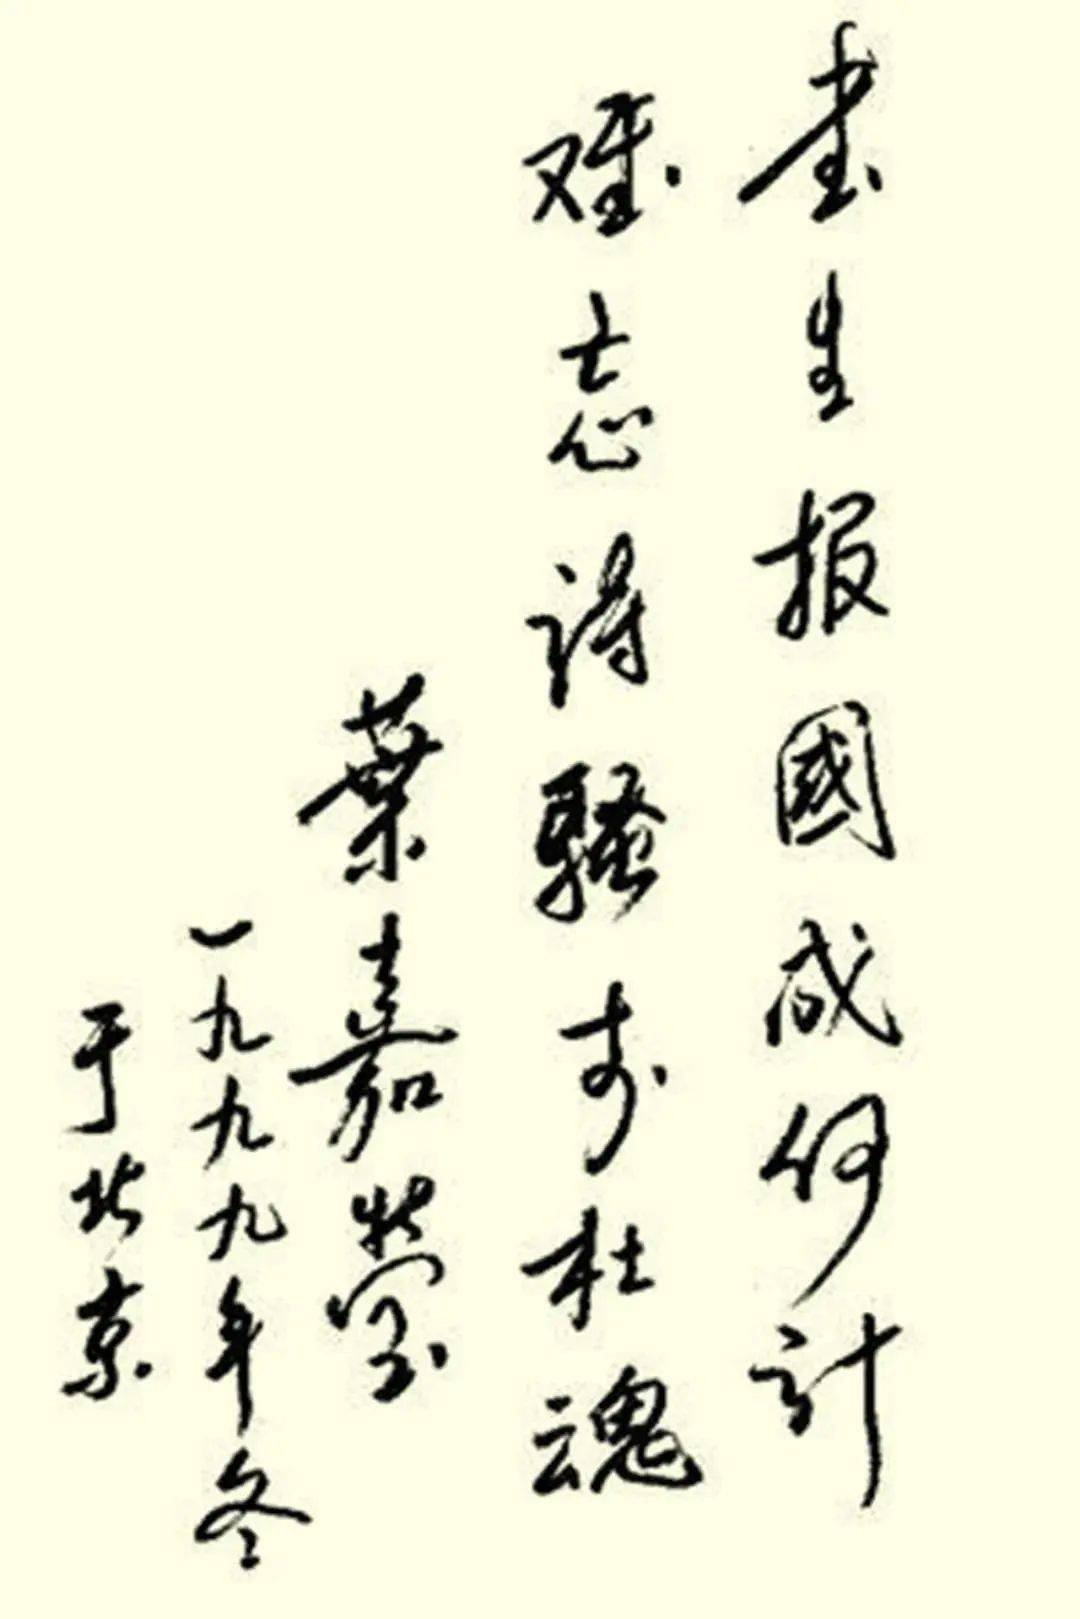 書生报國成何計
难忘詩騷李杜魂
葉嘉瑩
一九九九年冬
于北京